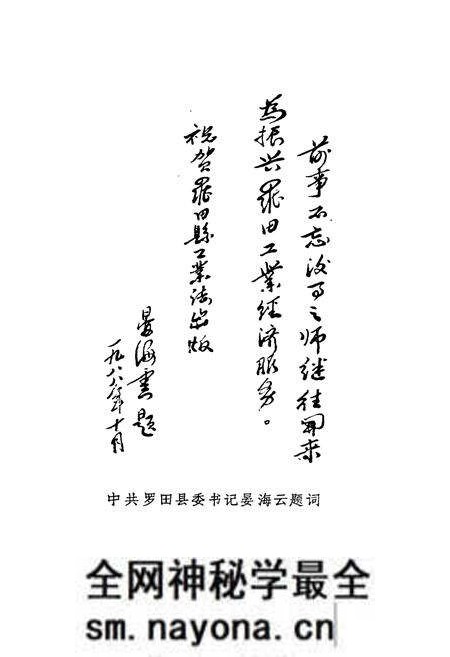 前事不忘后事之师继往开来
为振兴罗田工业经济服务。
祝贺罗田縣工業志出版
晏海雲題
一九八八年十月
中共罗田县委书记晏海云题词
全网神秘学最全
sm.nayona.cn